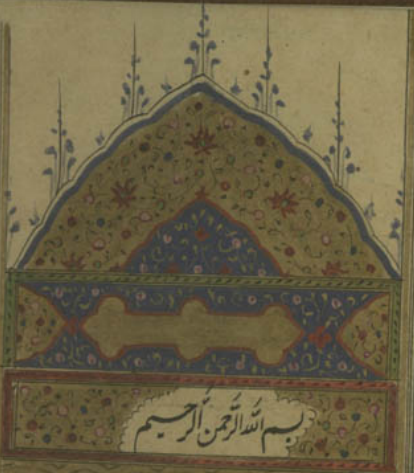 بسم الله الرَّحمن الرَّحیم